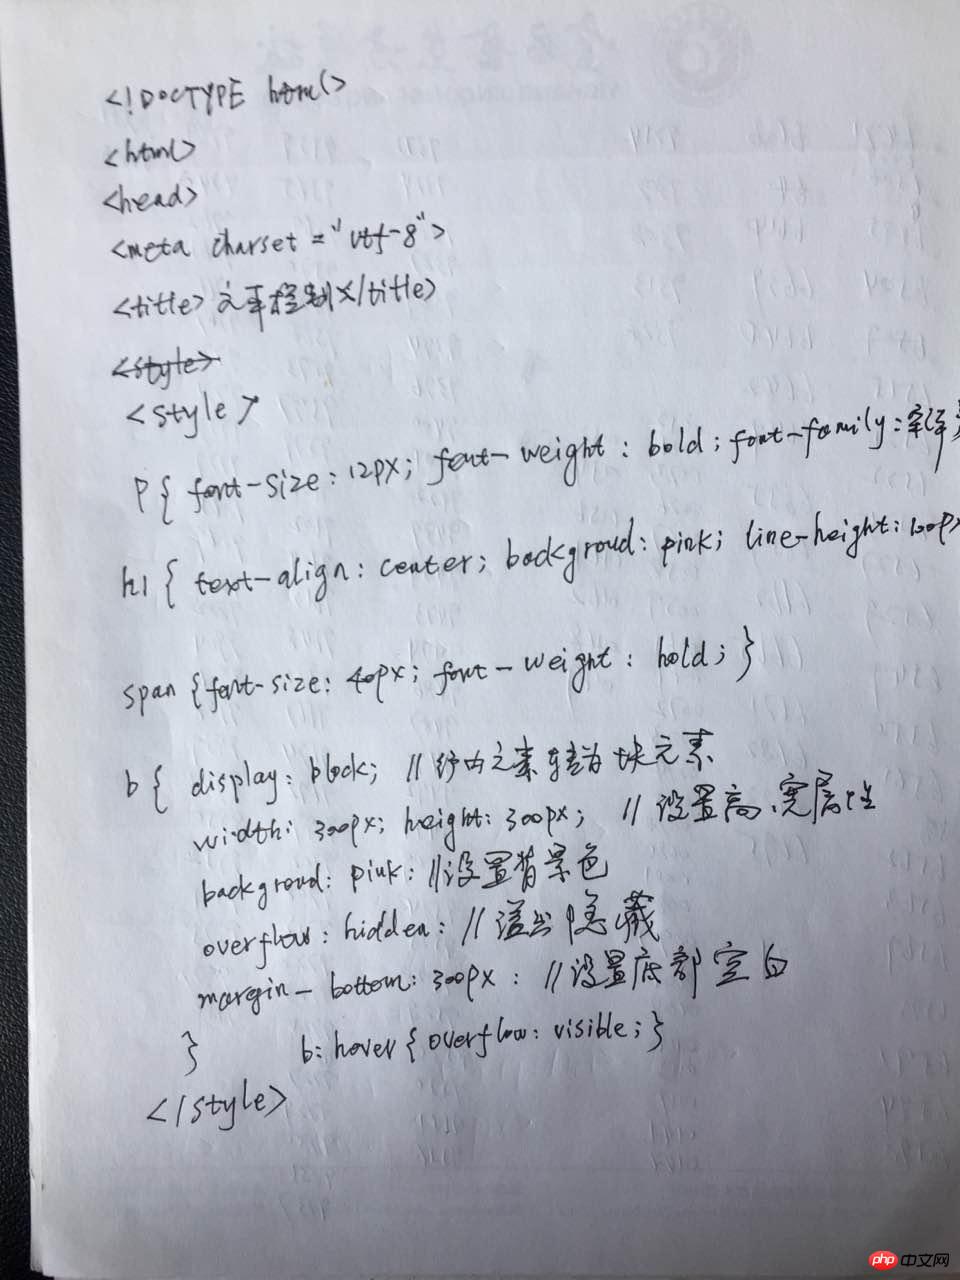 <!DOCTYPE html>
<html>
<head>
<meta charset="utf-8">
<title>文本控制</title>
<style>
<style>
p{ font-size:12px; font-weight:bold; font-family:
h1{ text-align:center; backgroud:pink; line-height:100px
span{font-size:40px; font-weight:bold;}
b{ display:block; //行内元素转为块元素
width:300px; height:300px; //设置高、宽属性
backgroud:pink: //设置背景色
overflow:hidden: //溢出隐藏
margin-bottom:300px: //设置底部空白
} b:hover{overflow:visible;}
</style>
php 中文网